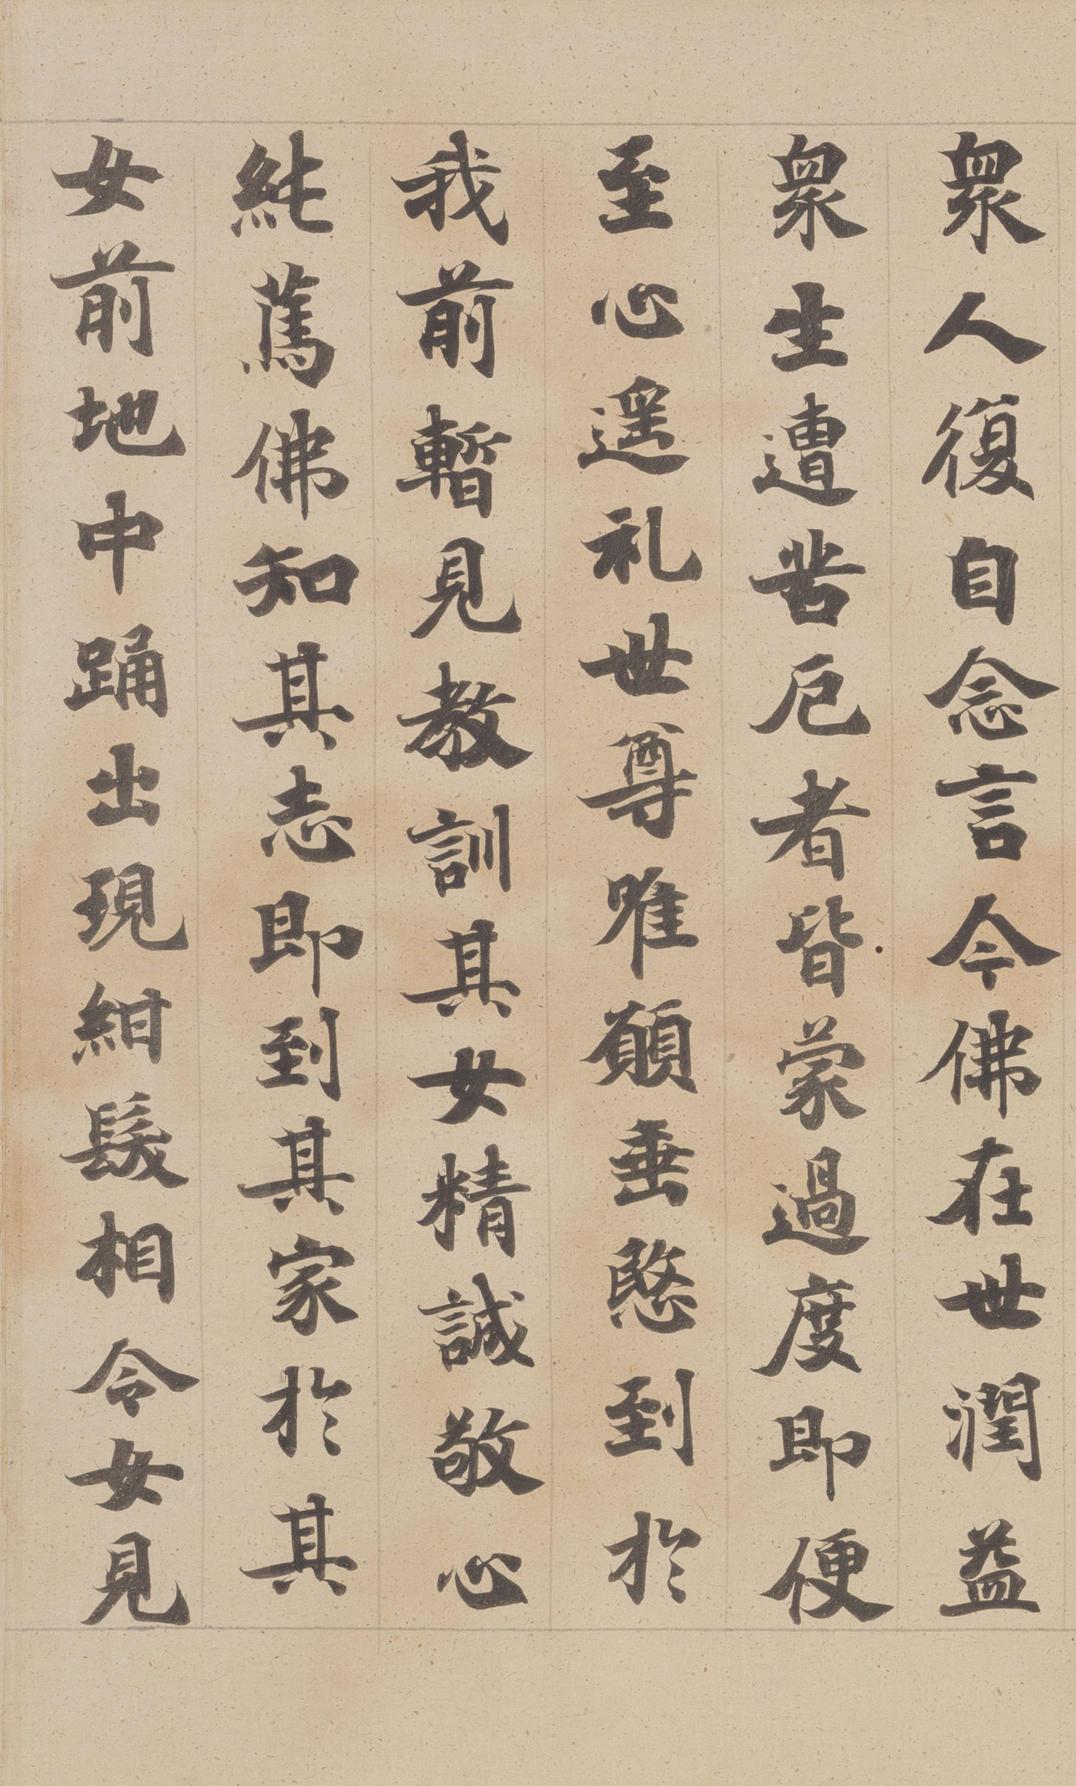 衆人復自念言今佛在世潤益
衆生遭苦厄者皆蒙過度即便
至心遥礼世尊唯願垂愍到於
我前暫見教訓其女精誠敬心
純篤佛知其志即到其家於其
女前地中踊出現紺髮相令女見